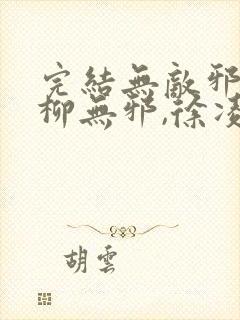 完結無敵邪
柳無邪,徐凌
胡雲